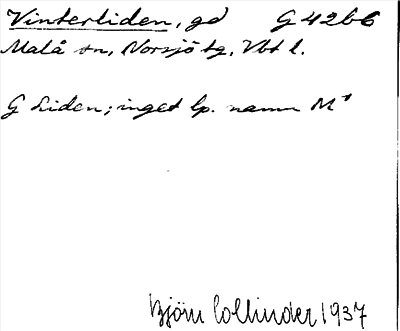 Vinterliden, gd G 42 b 6
Malå sn, Norsjö tg, Vbt l.
G Liden; inget lp. namn M¹
Björn Collinder 1937